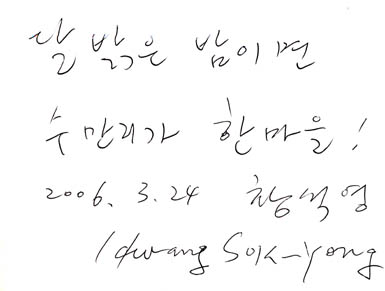 달 밝은 밤이면
수만리가 한마을!
2006. 3. 24 황석영
Hwang Sok-yong